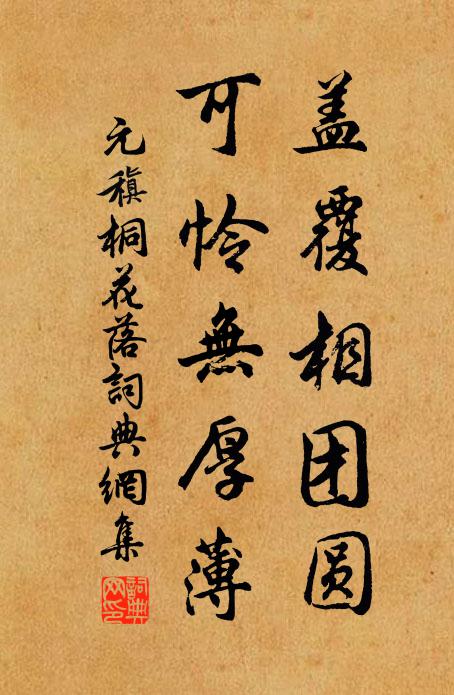 盖覆相团圆
可怜無厚薄
元稹桐花落詞典網集
詞典
网印